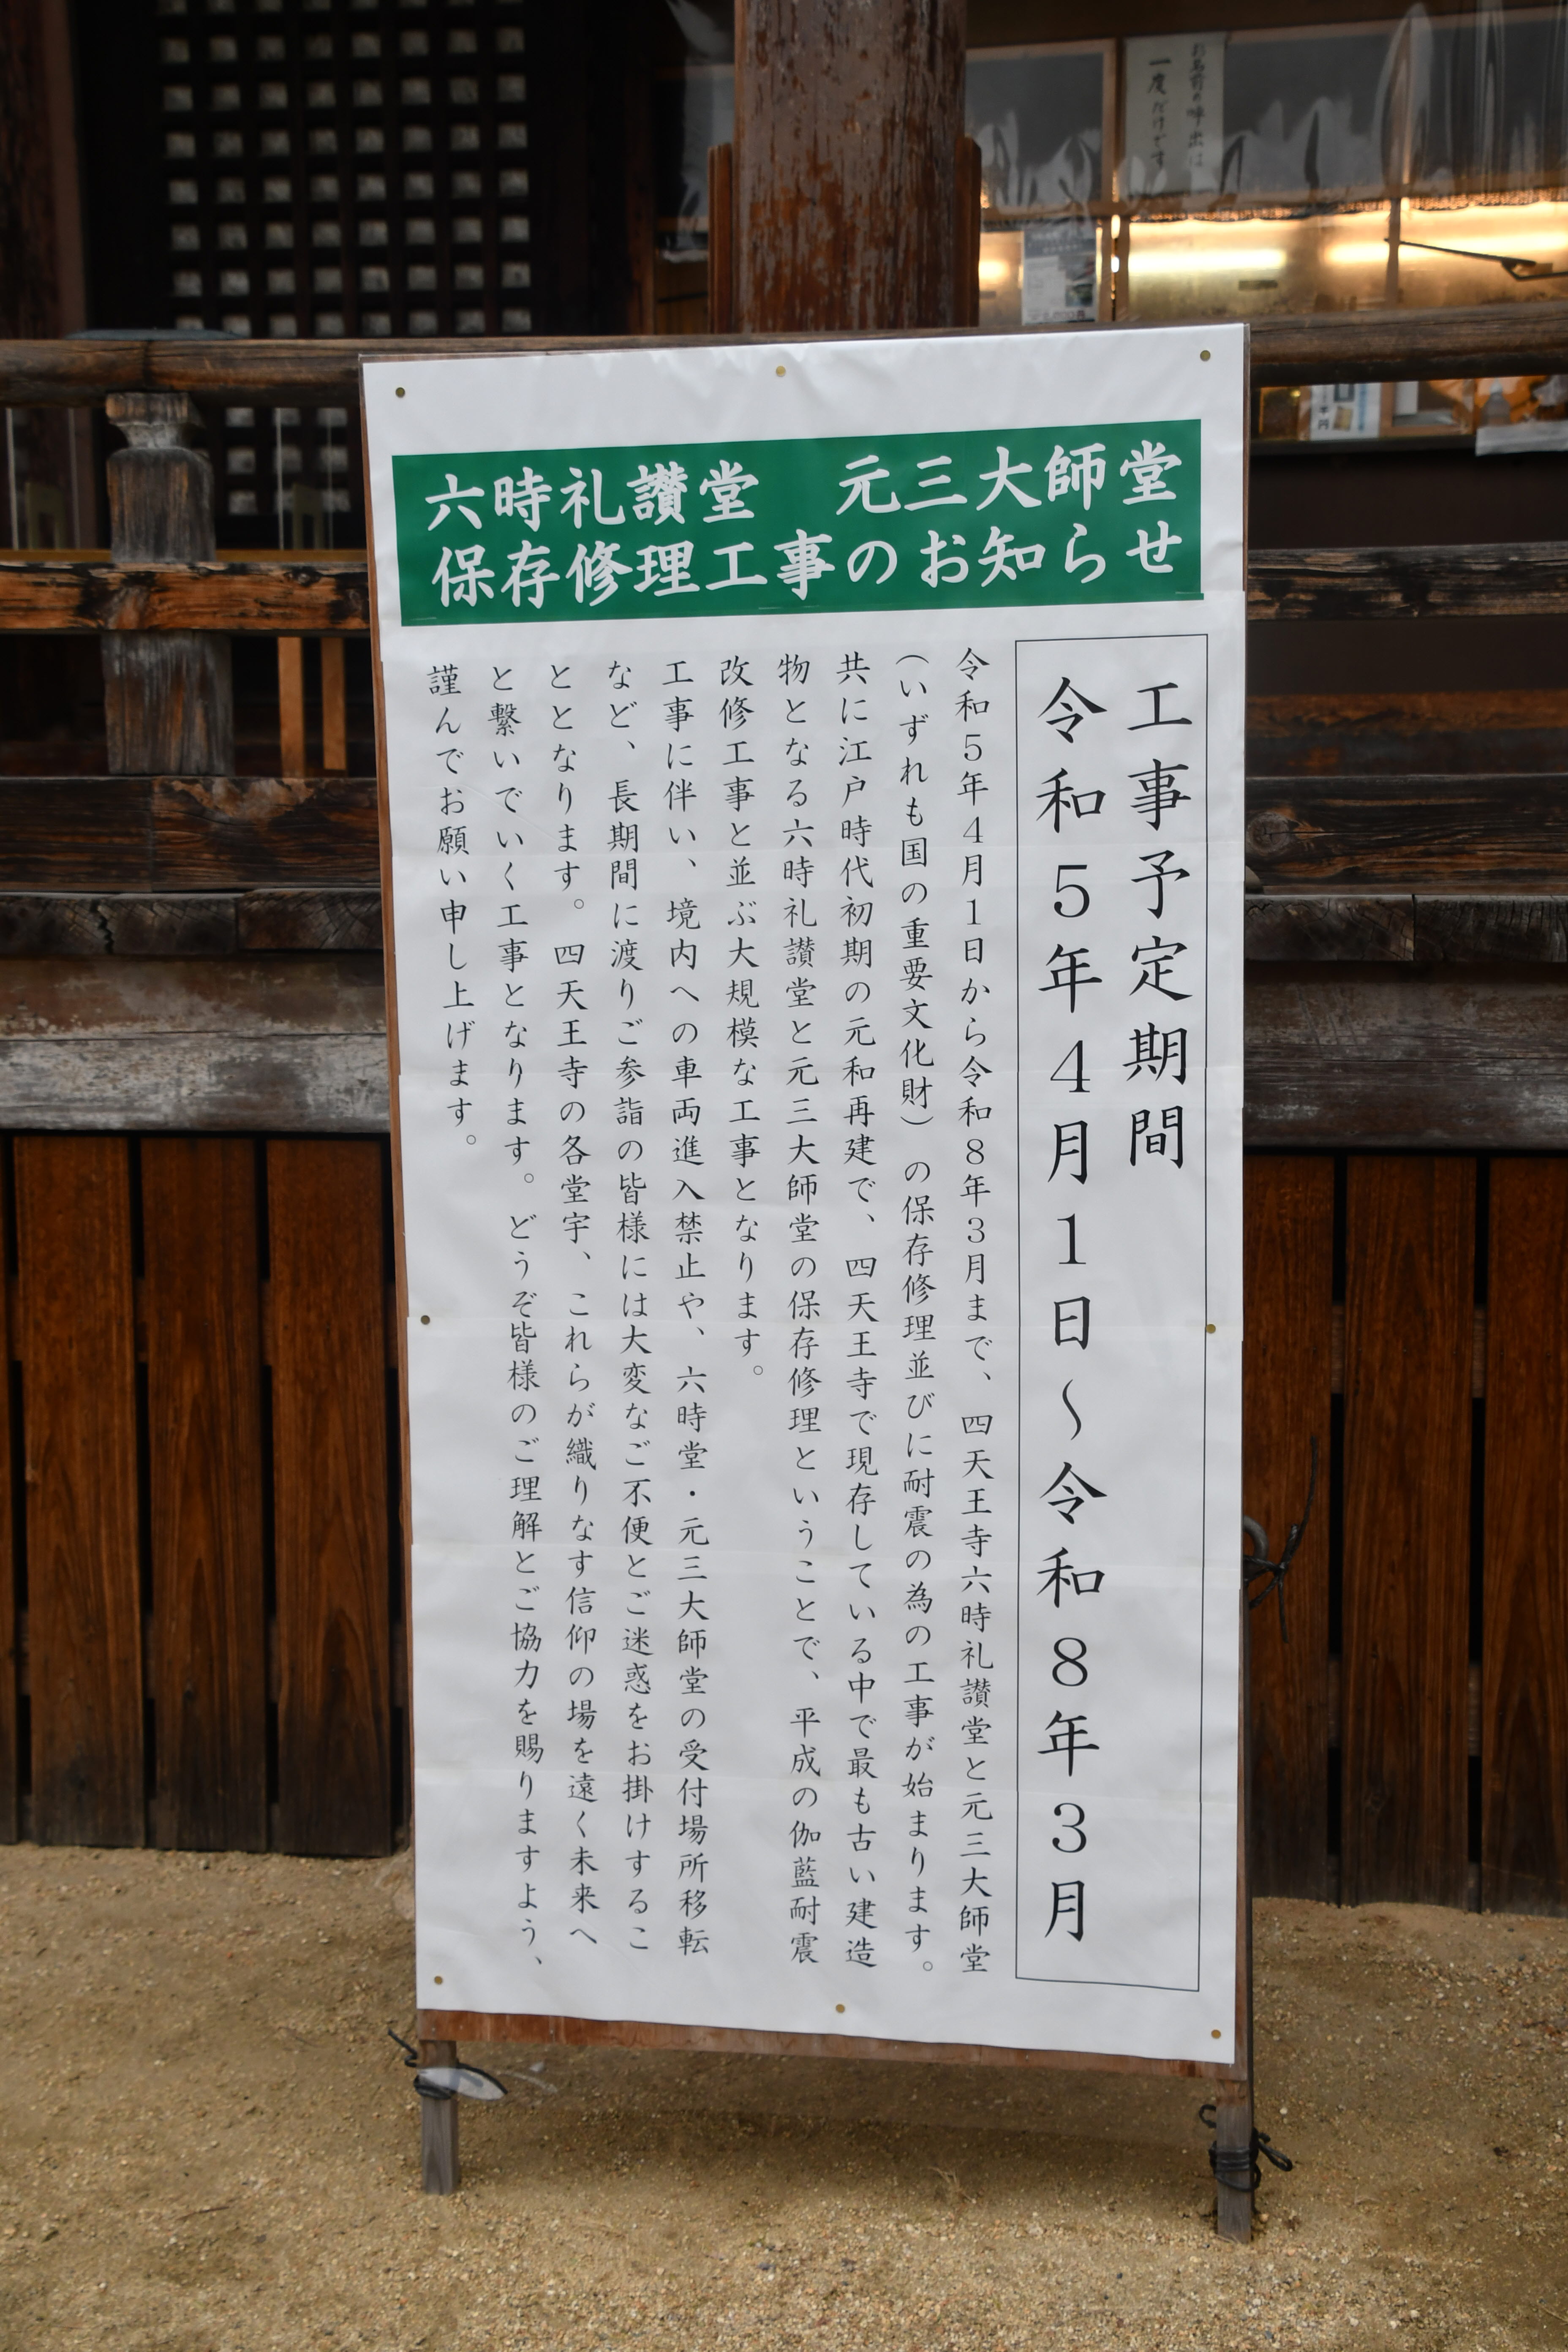 お名前の呼出は
一度だけです
六時礼讃堂　元三大師堂
保存修理工事のお知らせ
工事予定期間
令和5年4月1日〜令和8年3月
令和5年4月1日から令和8年3月まで、四天王寺六時礼讃堂と元三大師堂
（いずれも国の重要文化財）の保存修理並びに耐震の為の工事が始まります。
共に江戸時代初期の元和再建で、四天王寺で現存している中で最も古い建造
物となる六時礼讃堂と元三大師堂の保存修理ということで、平成の伽藍耐震
改修工事と並ぶ大規模な工事となります。
工事に伴い、境内への車両進入禁止や、六時堂・元三大師堂の受付場所移転
など、長期間に渡りご参詣の皆様には大変なご不便とご迷惑をお掛けするこ
ととなります。四天王寺の各堂宇、これらが織りなす信仰の場を遠く未来へ
と繋いでいく工事となります。どうぞ皆様のご理解とご協力を賜りますよう、
謹んでお願い申し上げます。